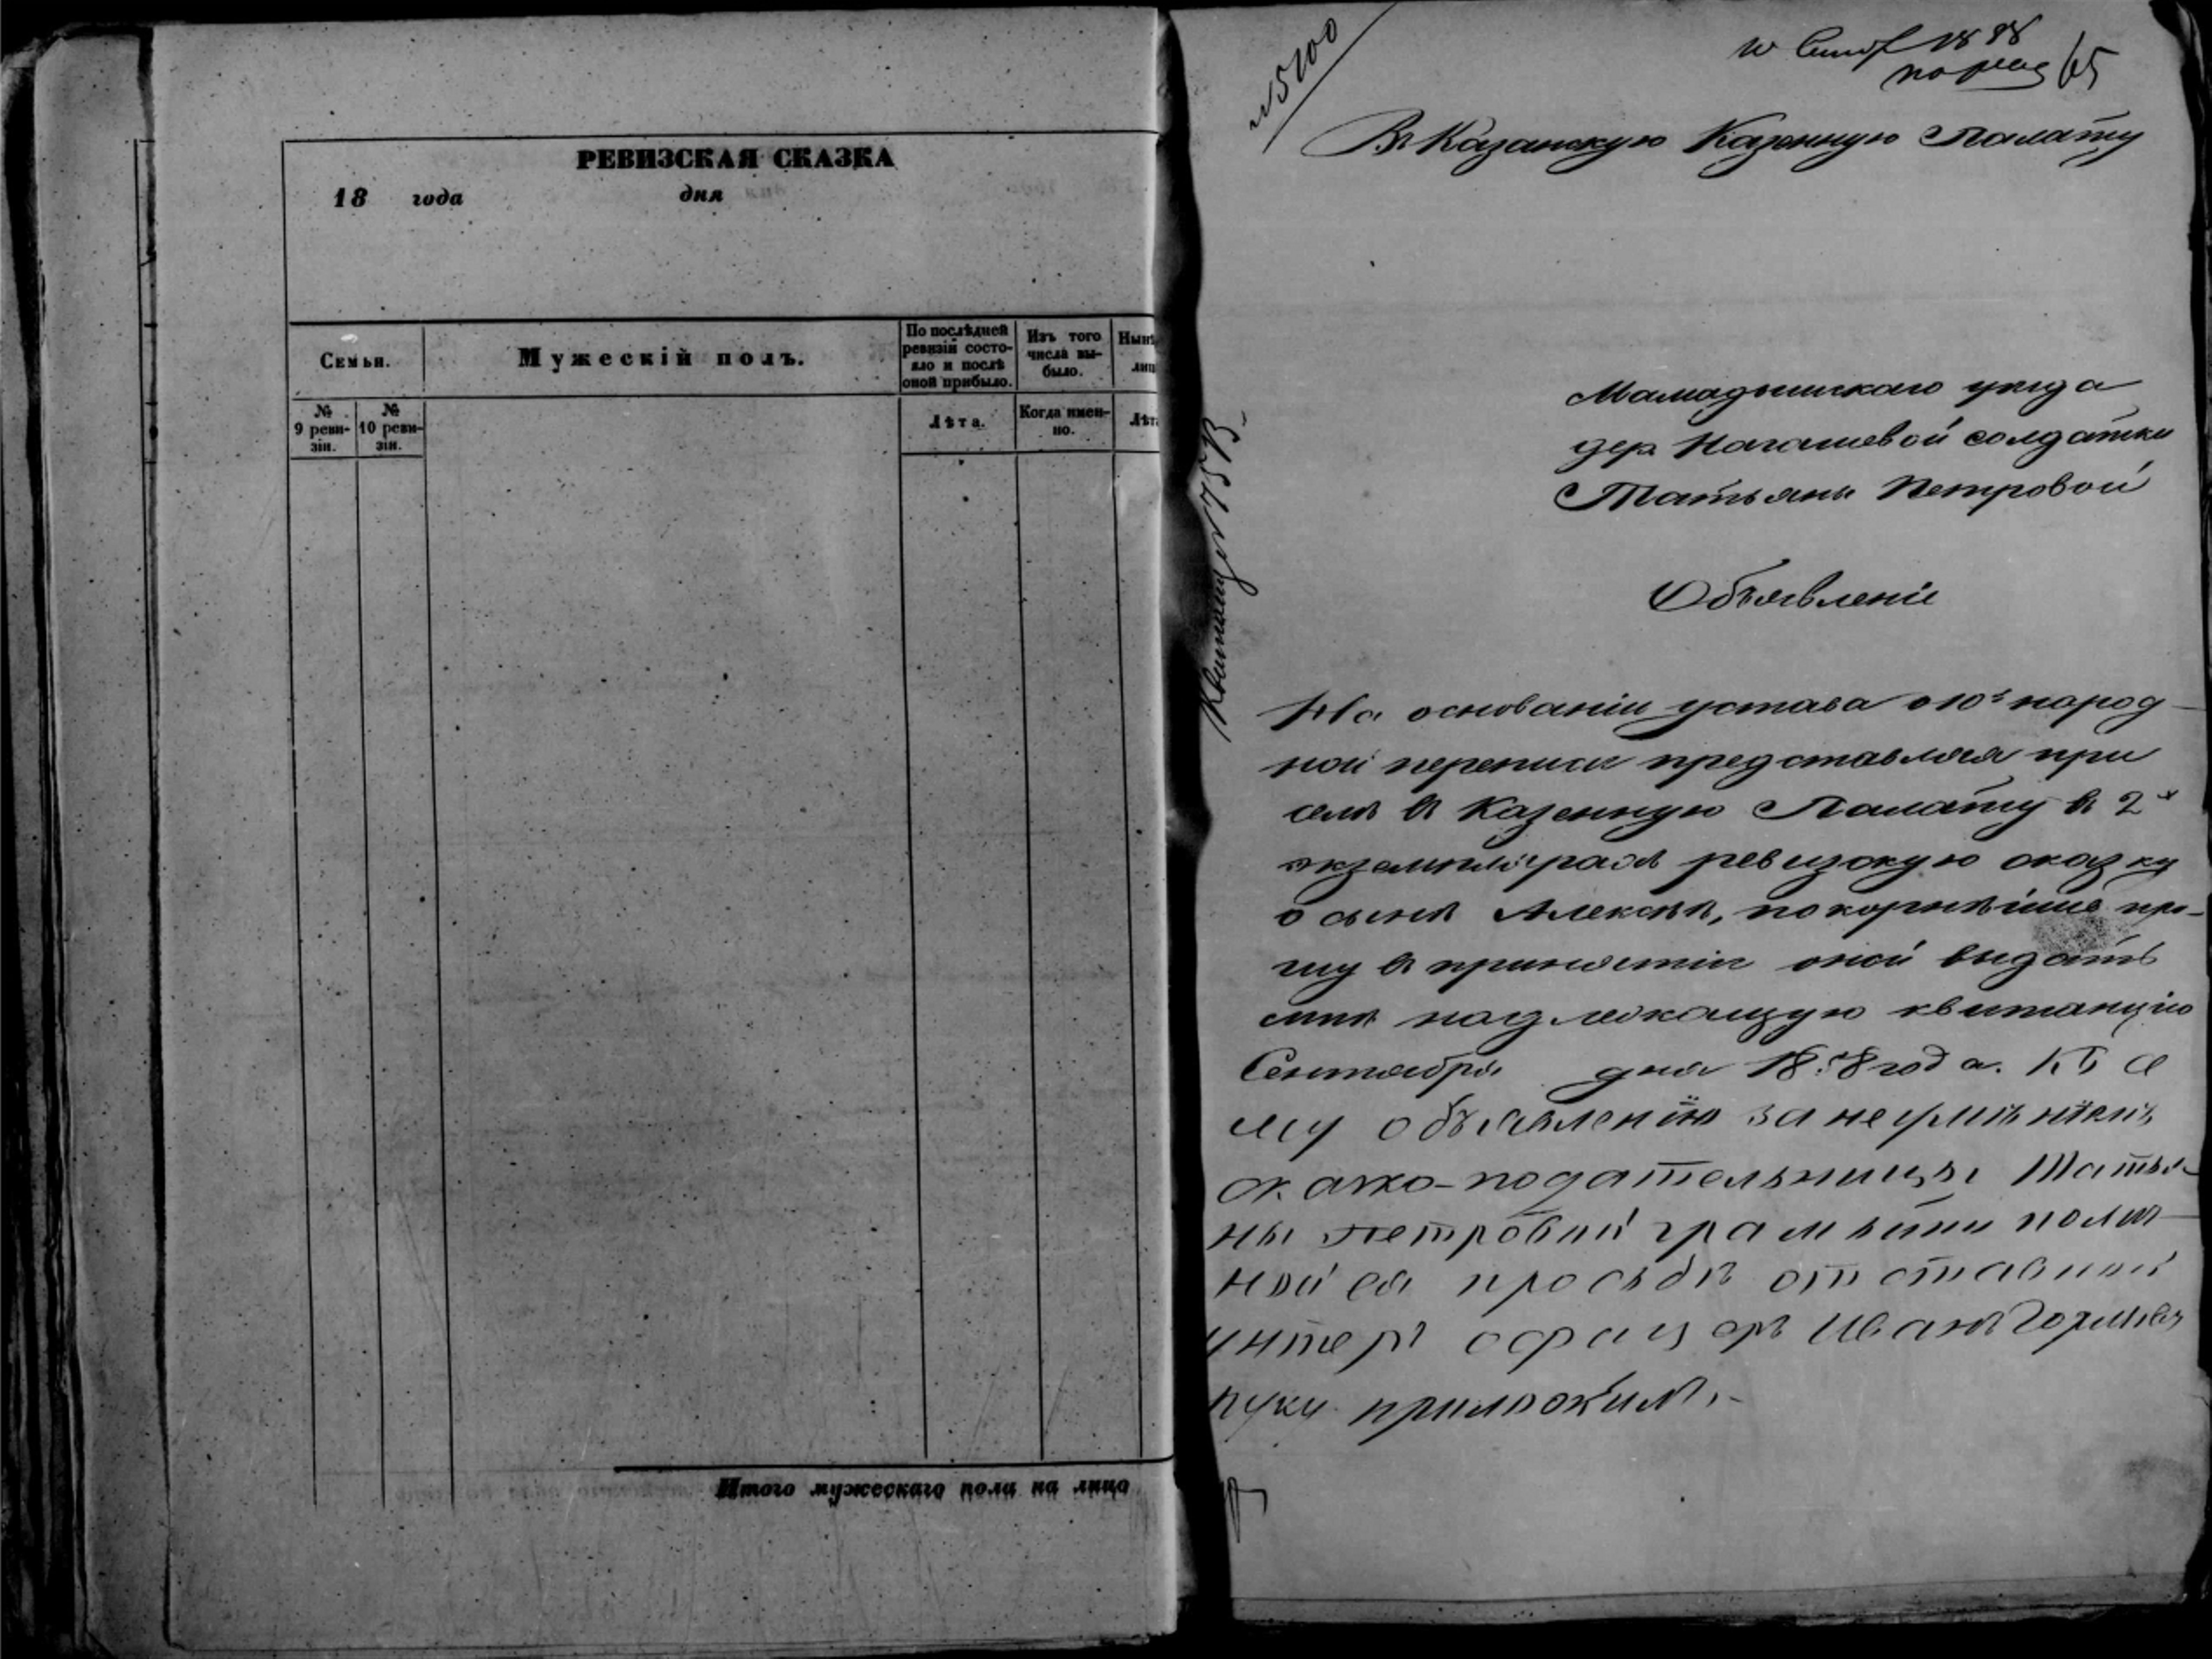 РЕВИЗСКАЯ СКАЗКА
18 года дня
Семьи.
Мужескій полъ.
По послѣдней ревизіи состояло и послѣ оной прибыло.
Изъ того числа выбыло.
№ 9 ревизіи.
№ 10 ревизіи.
Лѣта.
Когда именно.
Лѣта
Итого мужескаго пола на лицо
№ 5200
1858
65
Въ Казанскую Казенную Палату
Мамадышскаго уѣзда
дер. Нагашевой солдатки
Татьяны Петровой
Объявленіе
На основаніи устава о 10й народ
ной переписи представляя при
семъ въ Казенную Палату въ 2х
экземплярахъ ревизскую сказку
о сынѣ Алексѣѣ, покорнѣйше про-
шу въ принятіи оной выдать
мнѣ надлежащую квитанцію
Сентября дня 1858 года. Къ се
му объявленію за неумѣніемъ
сказко-подательницы Татья-
ны Петровой грамъты по лич
ной ея просьбѣ отставной
унтеръ офицеръ Иванъ
руку приложилъ.-